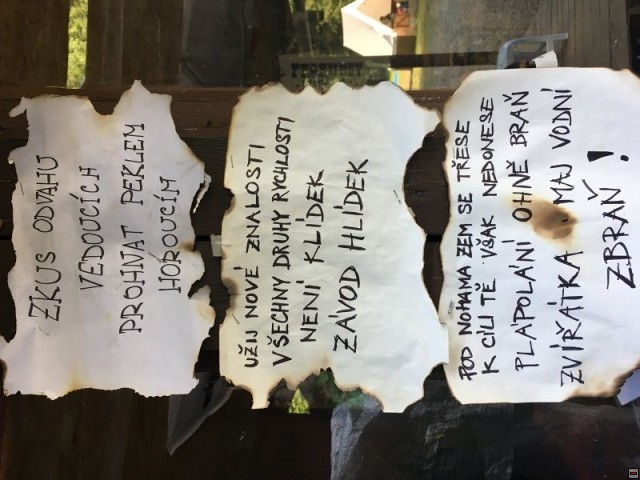 ZKUS ODVAHU
VEDOUCÍCH
PROHNAT PEKLEM
HOROUCÍM
UŽIJ NOVÉ ZNALOSTI
VŠECHNY DRUHY RYCHLOSTI
NENÍ KLÍDEK
ZÁVOD HLÍDEK
POD NOHAMA ZEM SE TŘESE
K CÍLI TĚ VŠAK NEDONESE
PLÁPOLÁNÍ OHNĚ BRAŇ
ZVÍŘÁTKA MAJ VODNÍ
ZBRAŇ!